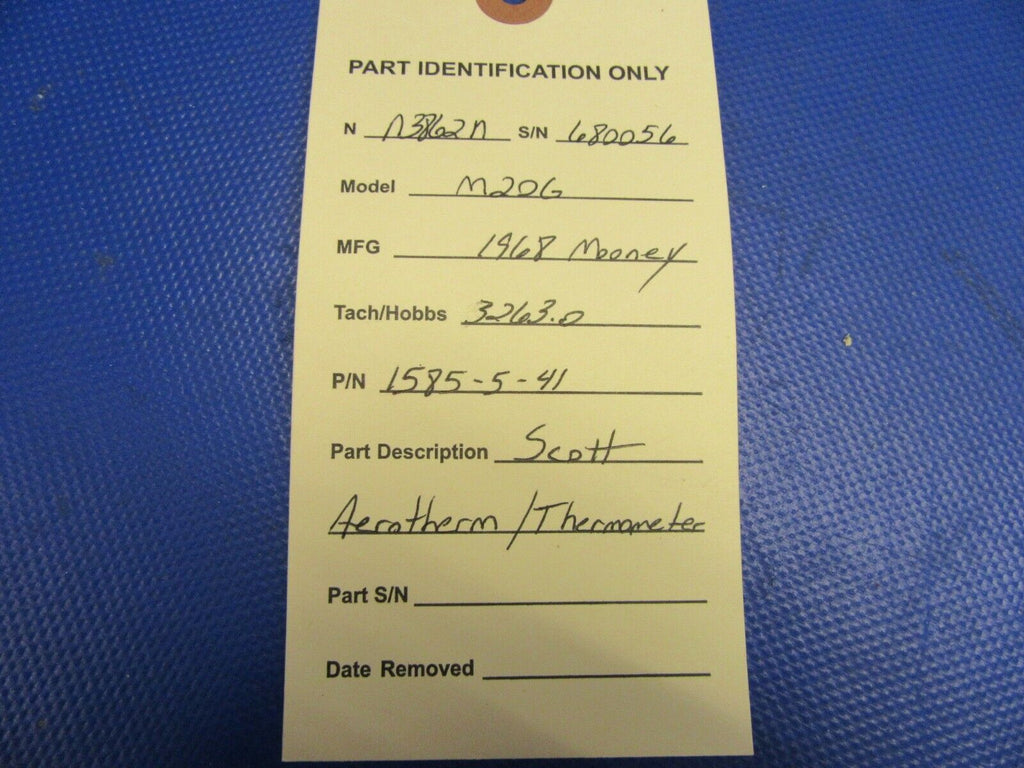 PART IDENTIFICATION ONLY
N N3862N S/N 680056
Model M20G
MFG 1968 Mooney
Tach/Hobbs 3263.0
P/N 1585-5-41
Part Description Scott
Aerotherm/Thermometer
Part S/N
Date Removed